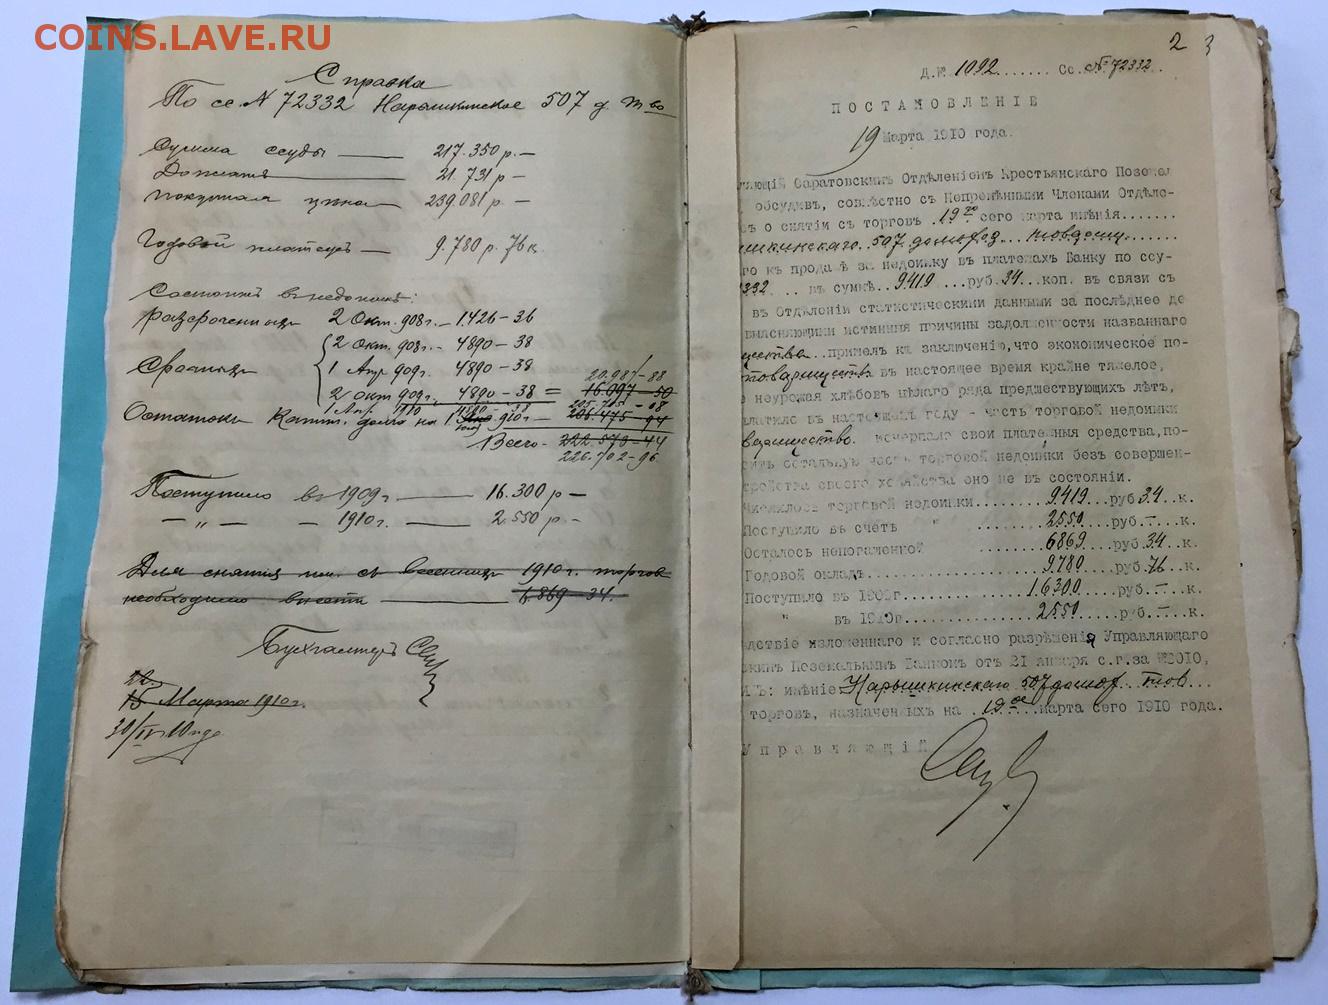 COINS.LAVE.RU
Справка
По сс. № 72332 Нарышкинское 507 д. т во
Сумма ссуды — 217.350 р. —
Доплата — 21.731 р —
покупная цѣна 239.081 р. —
Годовой платежъ — 9.780 р. 76 к.
Состоитъ въ недоимкѣ:
разсроченныхъ 2 Окт. 908 г. — 1.426 - 36
2 Окт. 908 г. - 4890 - 38
Срочныхъ 1 Апр 909 г. 4890 - 38
20.987 - 88
2 окт 909 г. 4890 - 38 = 16.097 - 50
1 Апр. 1910 4890 38
Остатокъ Капит. долга на 1 910 г. — 206.475 - 94
Всего - 222.573 - 44
226.702 - 96
Поступило въ 1909 г — 16.300 р —
— „ — — 1910 г. — 2.550 р —
Для снятія им. съ весеннихъ 1910 г. торгов
необходимо внести — 6.869 - 34.
Бухгалтеръ
15 Марта 1910 г.
30/IV 10 года
2 3
Д.№ 1092....... Сс. № 72332..
ПОСТАНОВЛЕНІЕ
19 Марта 1910 года.
ляющій Саратовскимъ Отдѣленіемъ Крестьянскаго Позем
обсудивъ, совмѣстно съ Непремѣнными Членами Отдѣле-
ъ о снятіи съ торговъ .19го сего марта имѣнія.......
шкинскаго 507 домохоз... товари.......
го къ продажѣ за недоимку въ платежахъ Банку по ссу-
332 ... въ суммѣ..9419....руб.34.коп. въ связи съ
въ Отдѣленіи статистическими данными за послѣднее де
выясняющими истинныя причины задолженности названнаго
щества..пришелъ къ заключенію,что экономическое по-
товарищества въ настоящее время крайне тяжелое,
е неурожая хлѣбовъ цѣлаго ряда предшествующихъ лѣтъ,
латило въ настоящемъ году - часть торговой недоимки
варищество. исчерпало свои платежныя средства,по-
сить остальную часть торговой недоимки безъ совершен-
тройства своего хозяйства оно не въ состояніи.
Числилось торговой недоимки........9419....руб 34..к.
Поступило въ счетъ " ........2550....руб.—..к.
Осталось непогашенной ........6869....руб.34..к.
Годовой окладъ....................9780....руб.76..к.
Поступило въ 1909г...............16300....руб.—..к.
" въ 1910г................2550....руб.—..к.
дствіе изложеннаго и согласно разрѣшенія Управляющаго
скимъ Поземельнымъ Банкомъ отъ 21 января с.г.за №2010,
ъ: имѣніе Нарышкинскаго 507 домох... тов
торговъ, назначенныхъ на .19ое....марта сего 1910 года.
Управляющій